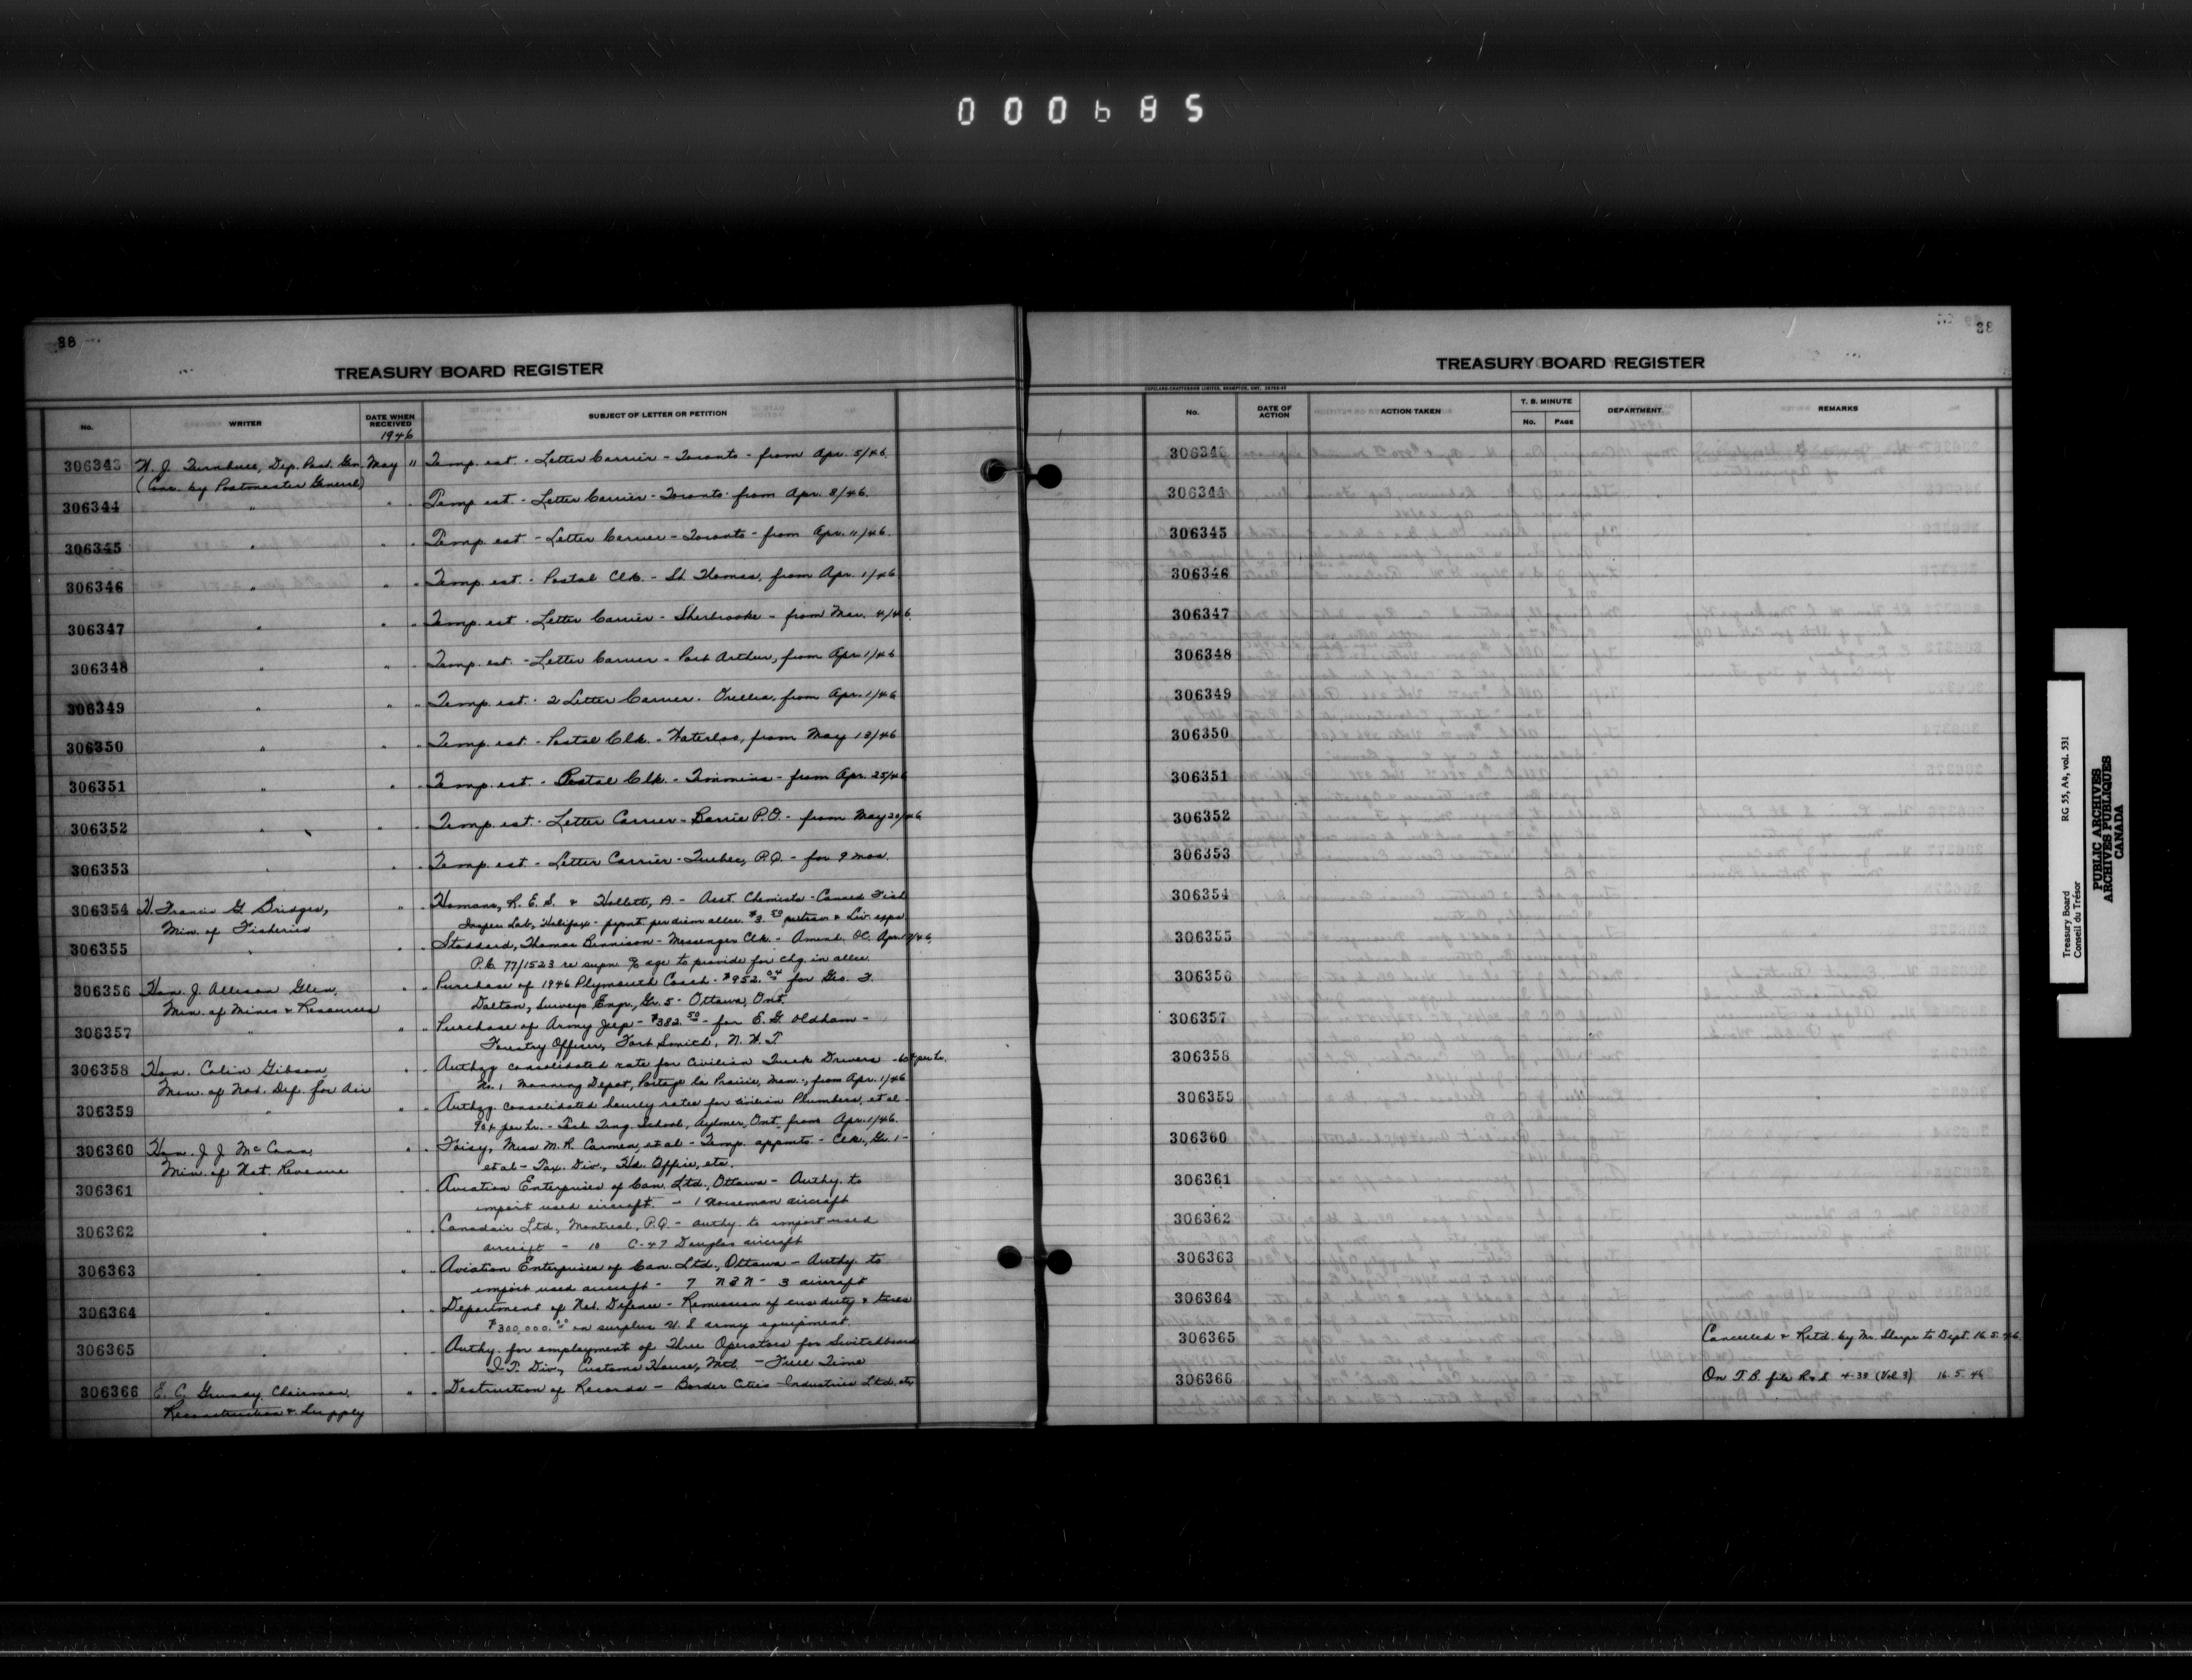 000685
38
TREASURY BOARD REGISTER
No. WRITER DATE WHEN RECEIVED SUBJECT OF LETTER OR PETITION
1946
306343 W. J. Turnbull, Dep. Post. Gen. May 11 Temp. est. - Letter Carrier - Toronto - from Apr. 5/46.
(Conc. by Postmaster General)
306344 " " " Temp est - Letter Carrier - Toronto - from Apr. 8/46.
306345 " " " Temp. est. - Letter Carrier - Toronto - from Apr. 11/46.
306346 " " " Temp. est. - Postal Clk. - St. Thomas, from Apr. 1/46
306347 " " " Temp. est. - Letter Carrier - Sherbrooke - from Mar. 4/46.
306348 " " " Temp. est. - Letter Carrier - Port Arthur, from Apr. 1/46
306349 " " " Temp. est. - 2 Letter Carrier - Orillia, from Apr. 1/46
306350 " " " Temp. est. - Postal Clk. - Waterloo, from May 13/46
306351 " " " Temp. est. - Postal Clk. - Timmins - from Apr. 25/46
306352 " " " Temp. est. - Letter Carrier - Barrie P.O. - from May 20/46
306353 " " " Temp. est - Letter Carrier - Quebec, P.Q. - for 9 mos.
306354 H. Francis G. Bridges, " " Homans, R. E. S. & Hollett, A. - Asst. Chemists - Canned Fish
Min. of Fisheries Inspec Lab, Halifax - pymt. per diem allce. $3.50 & Liv. exps.
306355 " " " Stoddard, Thomas Bennison - Messenger Clk. - Amend. OC. Apr. /46,
P.C. 77/1523 re supn. % age to provide for chg. in allce.
306356 Hon. J. Allison Glen, " " Purchase of 1946 Plymouth Coach - $952.04 for Geo. F.
Min. of Mines & Resources Dalton, Surveys Engr., Gr. 5 - Ottawa, Ont.
306357 " " " Purchase of Army Jeep - $382.50 - for E. G. Oldham -
Forestry Officer, Fort Smith, N. W. T
306358 Hon. Colin Gibson, " " Authzg consolidated rate for Civilian Truck Drivers - 60¢ per hr.
Min. of Nat. Def. for Air No. 1 Manning Depot, Portage la Prairie, Man., from Apr. 1/46
306359 " " " Authzg. consolidated hourly rates for civilian Plumbers, et al -
90¢ per hr. - Tech Trng. School, Aylmer, Ont., from Apr. 1/46.
306360 Hon. J. J. McCann, " " Foisy, Miss M. R. Carmen, et al - Temp. appmts - Clk., Gr. 1 -
Min. of Nat. Revenue et al - Tax. Div., Hd. Office, etc.
306361 " " " Aviation Enterprises of Can. Ltd., Ottawa - Authy. to
import used aircraft. - 1 Norseman aircraft
306362 " " " Canadair Ltd, Montreal, P.Q. - authy. to import used
aircraft - 10 C-47 Douglas aircraft
306363 " " " Aviation Enterprises of Can. Ltd., Ottawa - Authy. to
import used aircraft - 7 N2N-3 aircraft
306364 " " " Department of Nat. Defence - Remission of cus. duty & taxes
$300,000.00 on surplus U. S army equipment.
306365 " " " Authy. for employment of Three Operators for Switchboard
I.T. Div., Customs House, Mtl. - Full Time
306366 E. C. Grundy, Chairman, " " Destruction of Records - Border Cities Industries Ltd. etc
Reconstruction & Supply
38
TREASURY BOARD REGISTER
COPELAND-CHATTERSON LIMITED, BRAMPTON, ONT.
No. DATE OF ACTION ACTION TAKEN T. B. MINUTE No. PAGE DEPARTMENT REMARKS
306343
306344
306345
306346
306347
306348
306349
306350
306351
306352
306353
306354
306355
306356
306357
306358
306359
306360
306361
306362
306363
306364
306365 Cancelled & Retd. by Mr. Sharpe to Dept. 16.5.46
306366 On T.B. file R&S 4-38 (Vol. 3) 16.5.46
Treasury Board RG 55, A4, vol. 531
Conseil du Trésor
PUBLIC ARCHIVES
ARCHIVES PUBLIQUES
CANADA